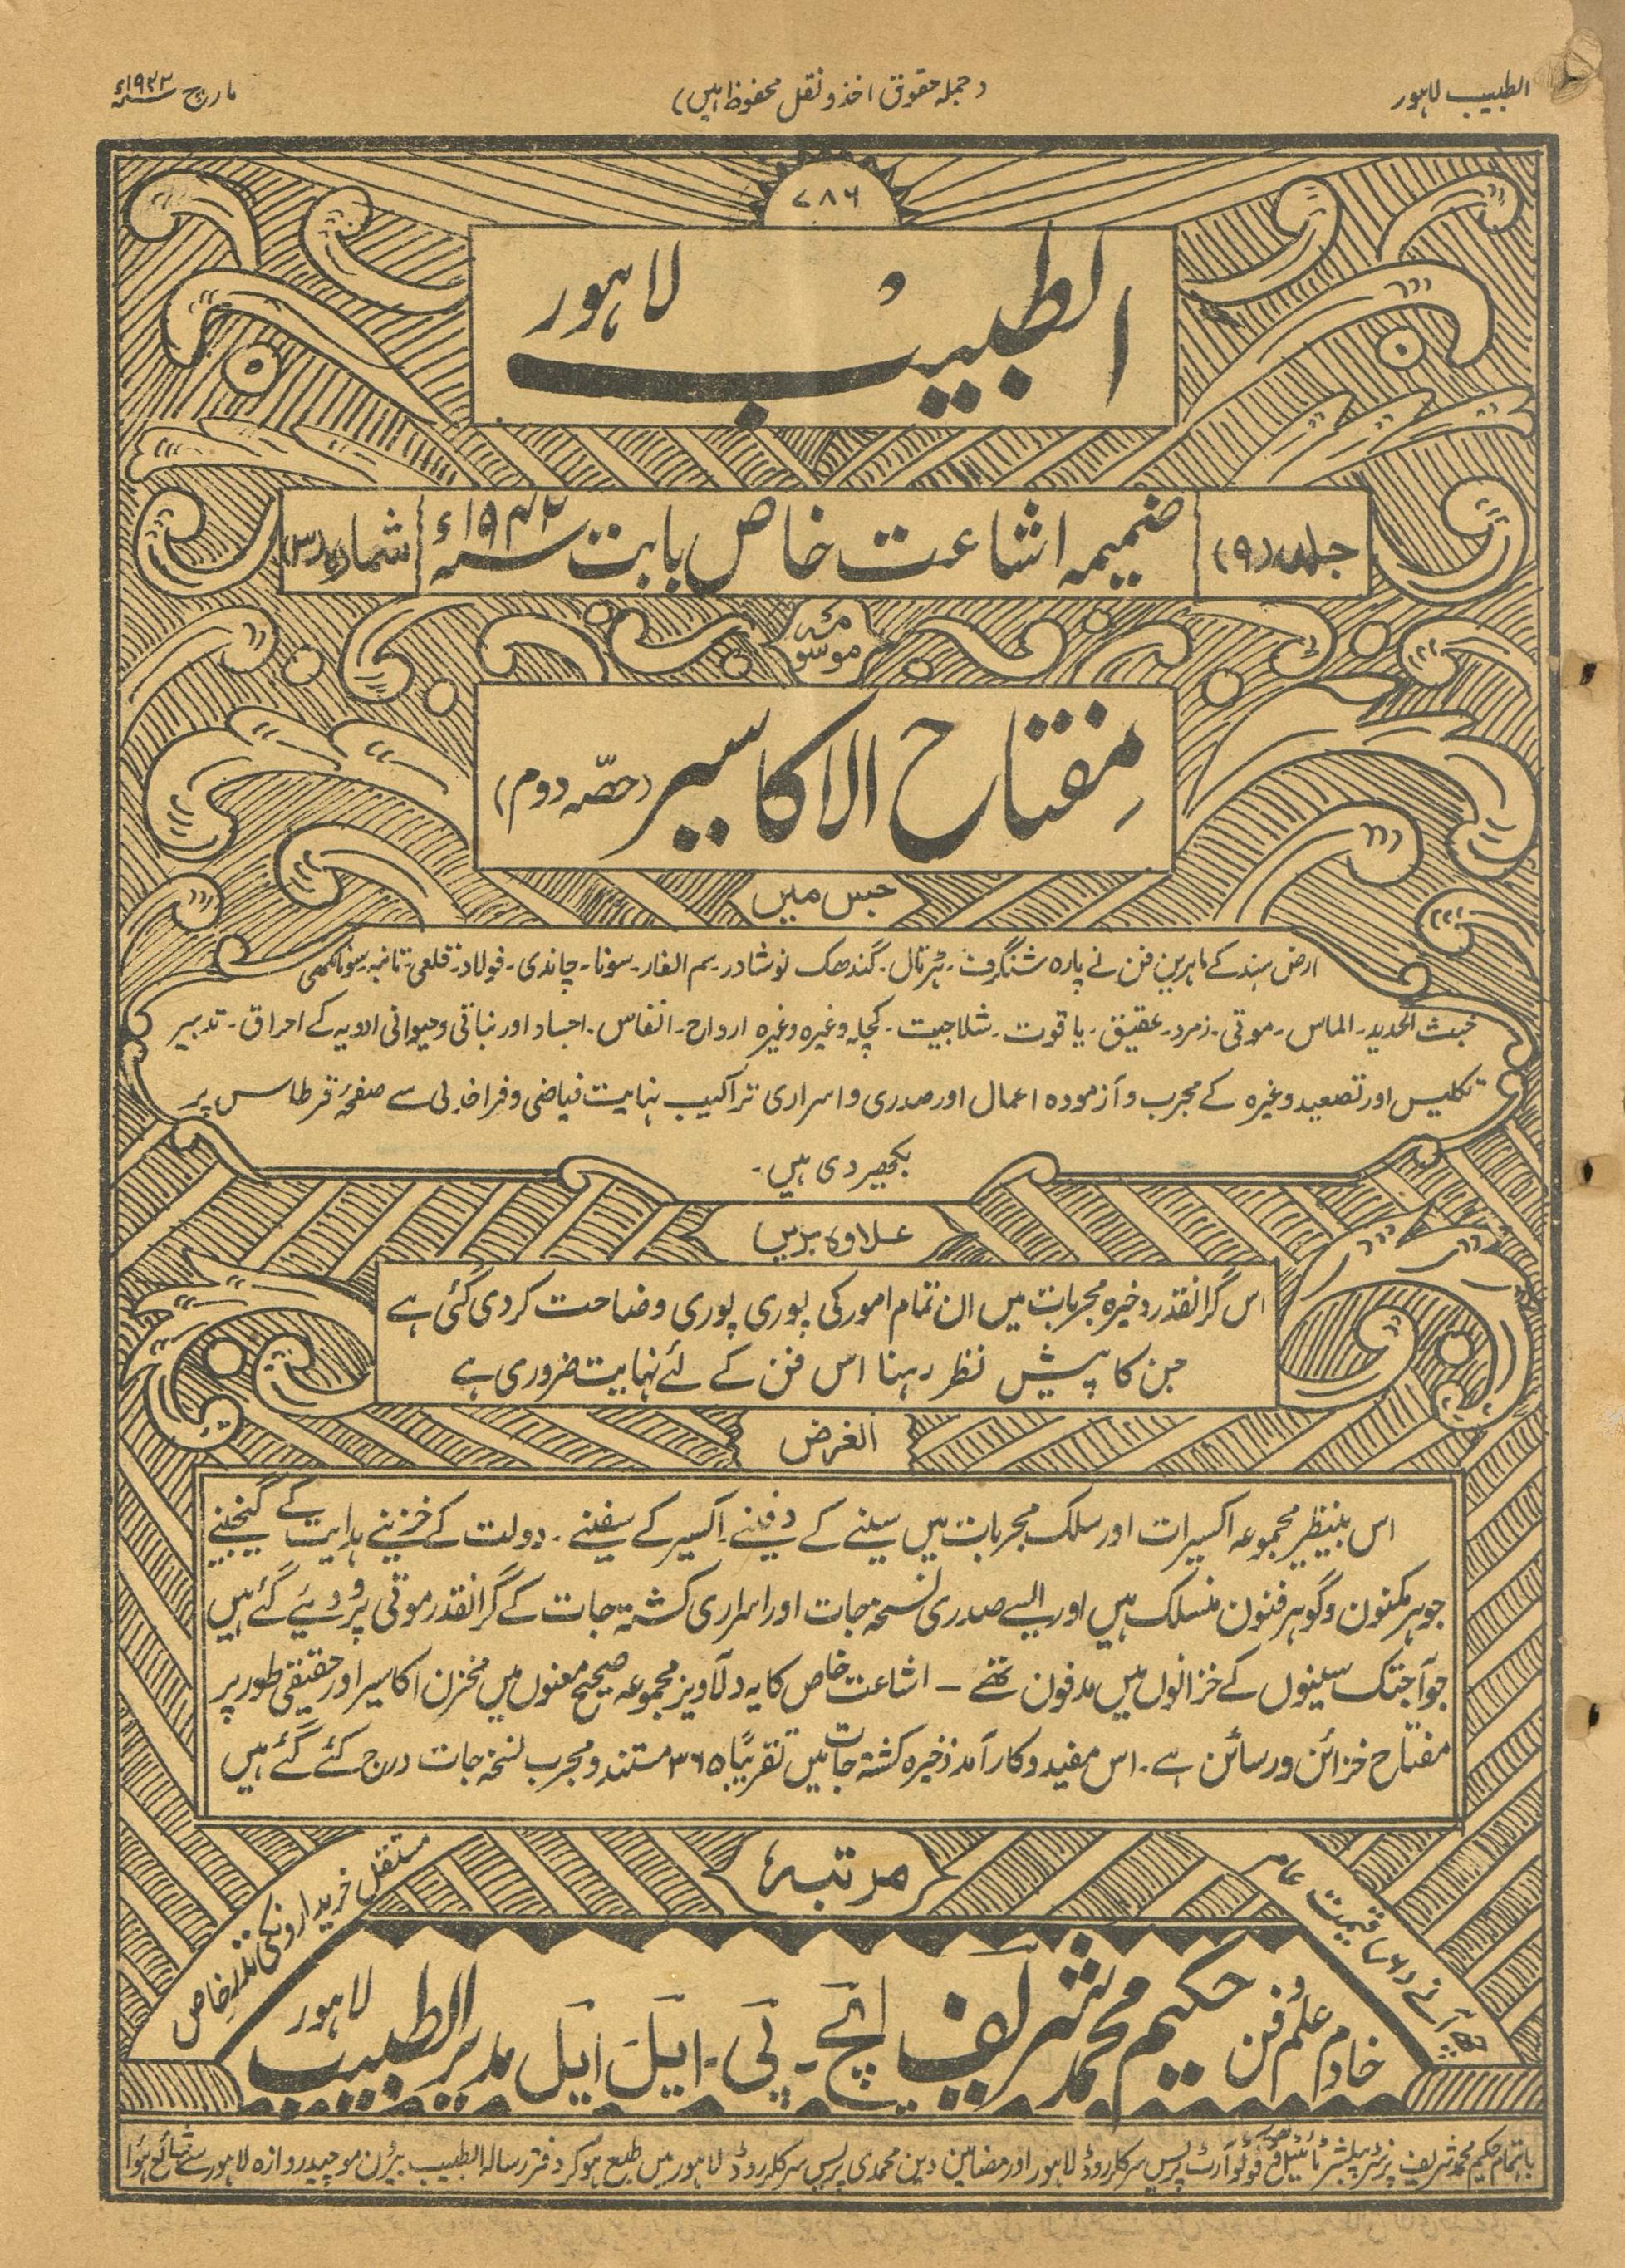 الطبیب لاہور
(جملہ حقوق اخذ و نقل محفوظ ہیں)
مارچ ۱۹۳۲ء
۷۸۶
الطبیب لاہور
جلد (۹)
ضمیمہ اشاعت خاص بابت ۱۹۳۲ء
شمارہ (۳)
موسومہ
مِفتاح الاکاسیر (حصّہ دوم)
جس میں
ارض ہند کے ماہرین فن نے پارہ شنگرف ۔ ہڑتال ۔ گندھک نوشادر ۔ سم الفار ۔ سونا ۔ چاندی ۔ فولاد ۔ قلعی ۔ تانبہ ۔ سونامکھی
خبث الحدید ۔ الماس ۔ موتی ۔ زمرد ۔ عقیق ۔ یاقوت ۔ شلاجیت ۔ کچلہ وغیرہ وغیرہ ارواح ۔ انفاس ۔ اجساد اور نباتی و حیوانی ادویہ کے احراق ۔ تدبیر
تکلیس اور تصعید وغیرہ کے مجرب و آزمودہ اعمال اور صدری و اسراری تراکیب نہایت فیاضی و فراخدلی سے صفحۂ قرطاس پر
بکھیر دی ہیں ۔
علاوہ بریں
اس گرانقدر ذخیرہ مجربات میں ان تمام امور کی پوری پوری وضاحت کر دی گئی ہے
جن کا پیش نظر رہنا اس فن کے لئے نہایت ضروری ہے
الغرض
اس بینظیر مجموعہ اکسیرات اور سلک مجربات میں سینے کے دفینے ۔ اکسیر کے سفینے ۔ دولت کے خزینے ہدایت کے گنجینے
جوہر مکنون و گوہر فنون منسلک ہیں اور ایسے صدری نسخہ جات اور اسراری کشتہ جات کے گرانقدر موتی پرو دیئے گئے ہیں
جو آجتک سینوں کے خزانوں میں مدفون تھے ۔ اشاعت خاص کا یہ دلآویز مجموعہ صحیح معنوں میں مخزن اکاسیر اور حقیقی طور پر
مفتاح خزائن و رسائن ہے ۔ اس مفید و کارآمد ذخیرہ کشتہ جات میں تقریباً ۳۶۵ مستند و مجرب نسخہ جات درج کئے گئے ہیں
مرتبہٗ
قیمت عام
چھ آنے (۶؍)
مستقل خریداروں کی نذر خاص
خادم علم و فن حکیم محمد شریف ایچ ۔ پی ۔ ایل ایل مدیر الطبیب لاہور
باہتمام حکیم محمد شریف پرنٹر پبلشر ٹائیٹل فوٹو آرٹ پریس سرکلر روڈ لاہور اور مضامین دین محمدی پریس سرکلر روڈ لاہور میں طبع ہو کر دفتر رسالہ الطبیب بیرون موچیدروازہ لاہور سے شائع ہوا